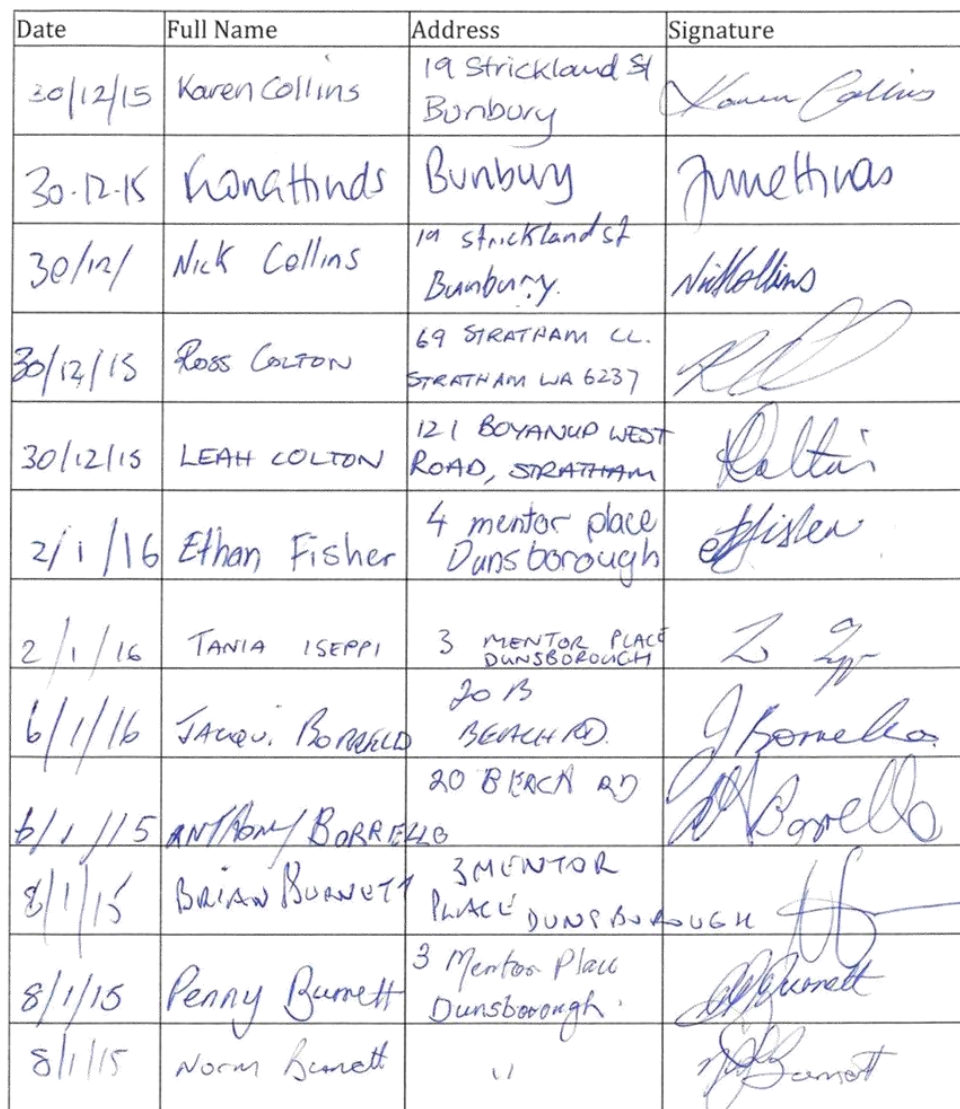 Date Full Name Address Signature
30/12/15 Karen Collins 19 Strickland St
Bunbury Karen Collins
30-12-15 Bunbury
30/12/ Nick Collins 19 Strickland st
Bunbury. Nick Collins
30/12/15 ROSS COLTON 69 STRATHAM CL.
STRATHAM WA 6237
30/12/15 LEAH COLTON 121 BOYANUP WEST
ROAD, STRATHAM
2/1/16 Ethan Fisher 4 mentor place
Dunsborough
2/1/16 TANIA ISEPPI 3 MENTOR PLACE
DUNSBOROUGH
6/1/16 JACQUI BORRELLO 20 B
BEACH RD. J Borrello
6/1/15 ANTHONY BORRELLO 20 BEACH RD Borrello
8/1/15 BRIAN BURNETT 3 MENTOR
PLACE DUNSBOROUGH
8/1/15 Penny Burnett 3 Mentor Place
Dunsborough. Burnett
8/1/15 Norm Burnett " Burnett